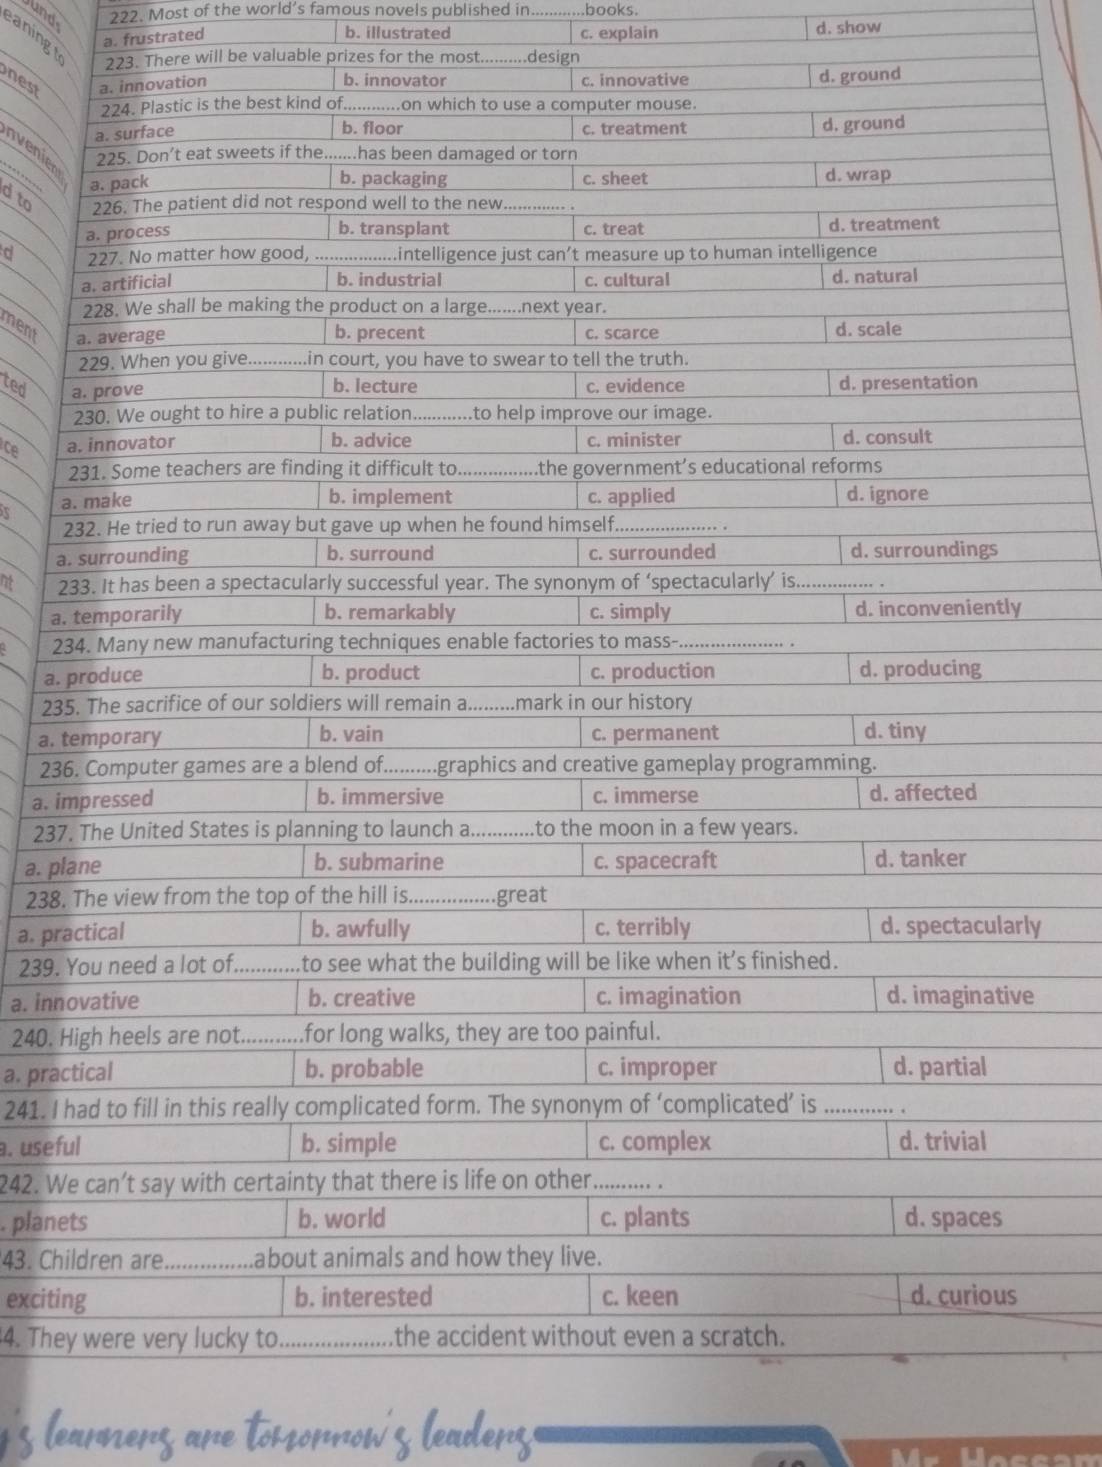 unds
eaning to
onest
onveniently
............
d to
d
ment
ted
ce
ss
nt
e
222. Most of the world's famous novels published in............books.
a. frustrated b. illustrated c. explain d. show
223. There will be valuable prizes for the most..........design
a. innovation b. innovator c. innovative d. ground
224. Plastic is the best kind of............on which to use a computer mouse.
a. surface b. floor c. treatment d. ground
225. Don't eat sweets if the.......has been damaged or torn
a. pack b. packaging c. sheet d. wrap
226. The patient did not respond well to the new............. .
a. process b. transplant c. treat d. treatment
227. No matter how good, .................intelligence just can't measure up to human intelligence
a. artificial b. industrial c. cultural d. natural
228. We shall be making the product on a large.......next year.
a. average b. precent c. scarce d. scale
229. When you give............in court, you have to swear to tell the truth.
a. prove b. lecture c. evidence d. presentation
230. We ought to hire a public relation............to help improve our image.
a. innovator b. advice c. minister d. consult
231. Some teachers are finding it difficult to................the government's educational reforms
a. make b. implement c. applied d. ignore
232. He tried to run away but gave up when he found himself.................... .
a. surrounding b. surround c. surrounded d. surroundings
233. It has been a spectacularly successful year. The synonym of 'spectacularly' is............... .
a. temporarily b. remarkably c. simply d. inconveniently
234. Many new manufacturing techniques enable factories to mass-.................... .
a. produce b. product c. production d. producing
235. The sacrifice of our soldiers will remain a.........mark in our history
a. temporary b. vain c. permanent d. tiny
236. Computer games are a blend of..........graphics and creative gameplay programming.
a. impressed b. immersive c. immerse d. affected
237. The United States is planning to launch a............to the moon in a few years.
a. plane b. submarine c. spacecraft d. tanker
238. The view from the top of the hill is................great
a. practical b. awfully c. terribly d. spectacularly
239. You need a lot of............to see what the building will be like when it's finished.
a. innovative b. creative c. imagination d. imaginative
240. High heels are not...........for long walks, they are too painful.
a. practical b. probable c. improper d. partial
241. I had to fill in this really complicated form. The synonym of 'complicated' is ............ .
a. useful b. simple c. complex d. trivial
242. We can't say with certainty that there is life on other.......... .
. planets b. world c. plants d. spaces
43. Children are...............about animals and how they live.
exciting b. interested c. keen d. curious
4. They were very lucky to...................the accident without even a scratch.
y's learners are tomorrow's leaders
Mr. Hossam